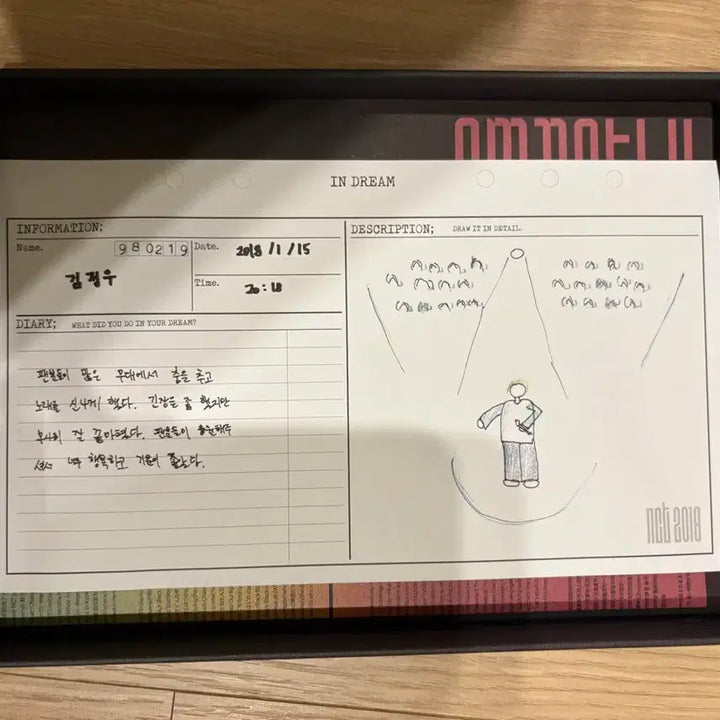 IN DREAM
INFORMATION;
Name. 980219
김정우
Date. 2018/1/15
Time. 20:18
DIARY; WHAT DID YOU DO IN YOUR DREAM?
팬분들이 많은 무대에서 춤을 추고
노래를 신나게 했다. 긴장을 좀 했지만
무사히 잘 끝마쳤다. 팬분들이 응원해주
셔서 너무 행복하고 기분이 좋았다.
DESCRIPTION; DRAW IT IN DETAIL.
nct 2018